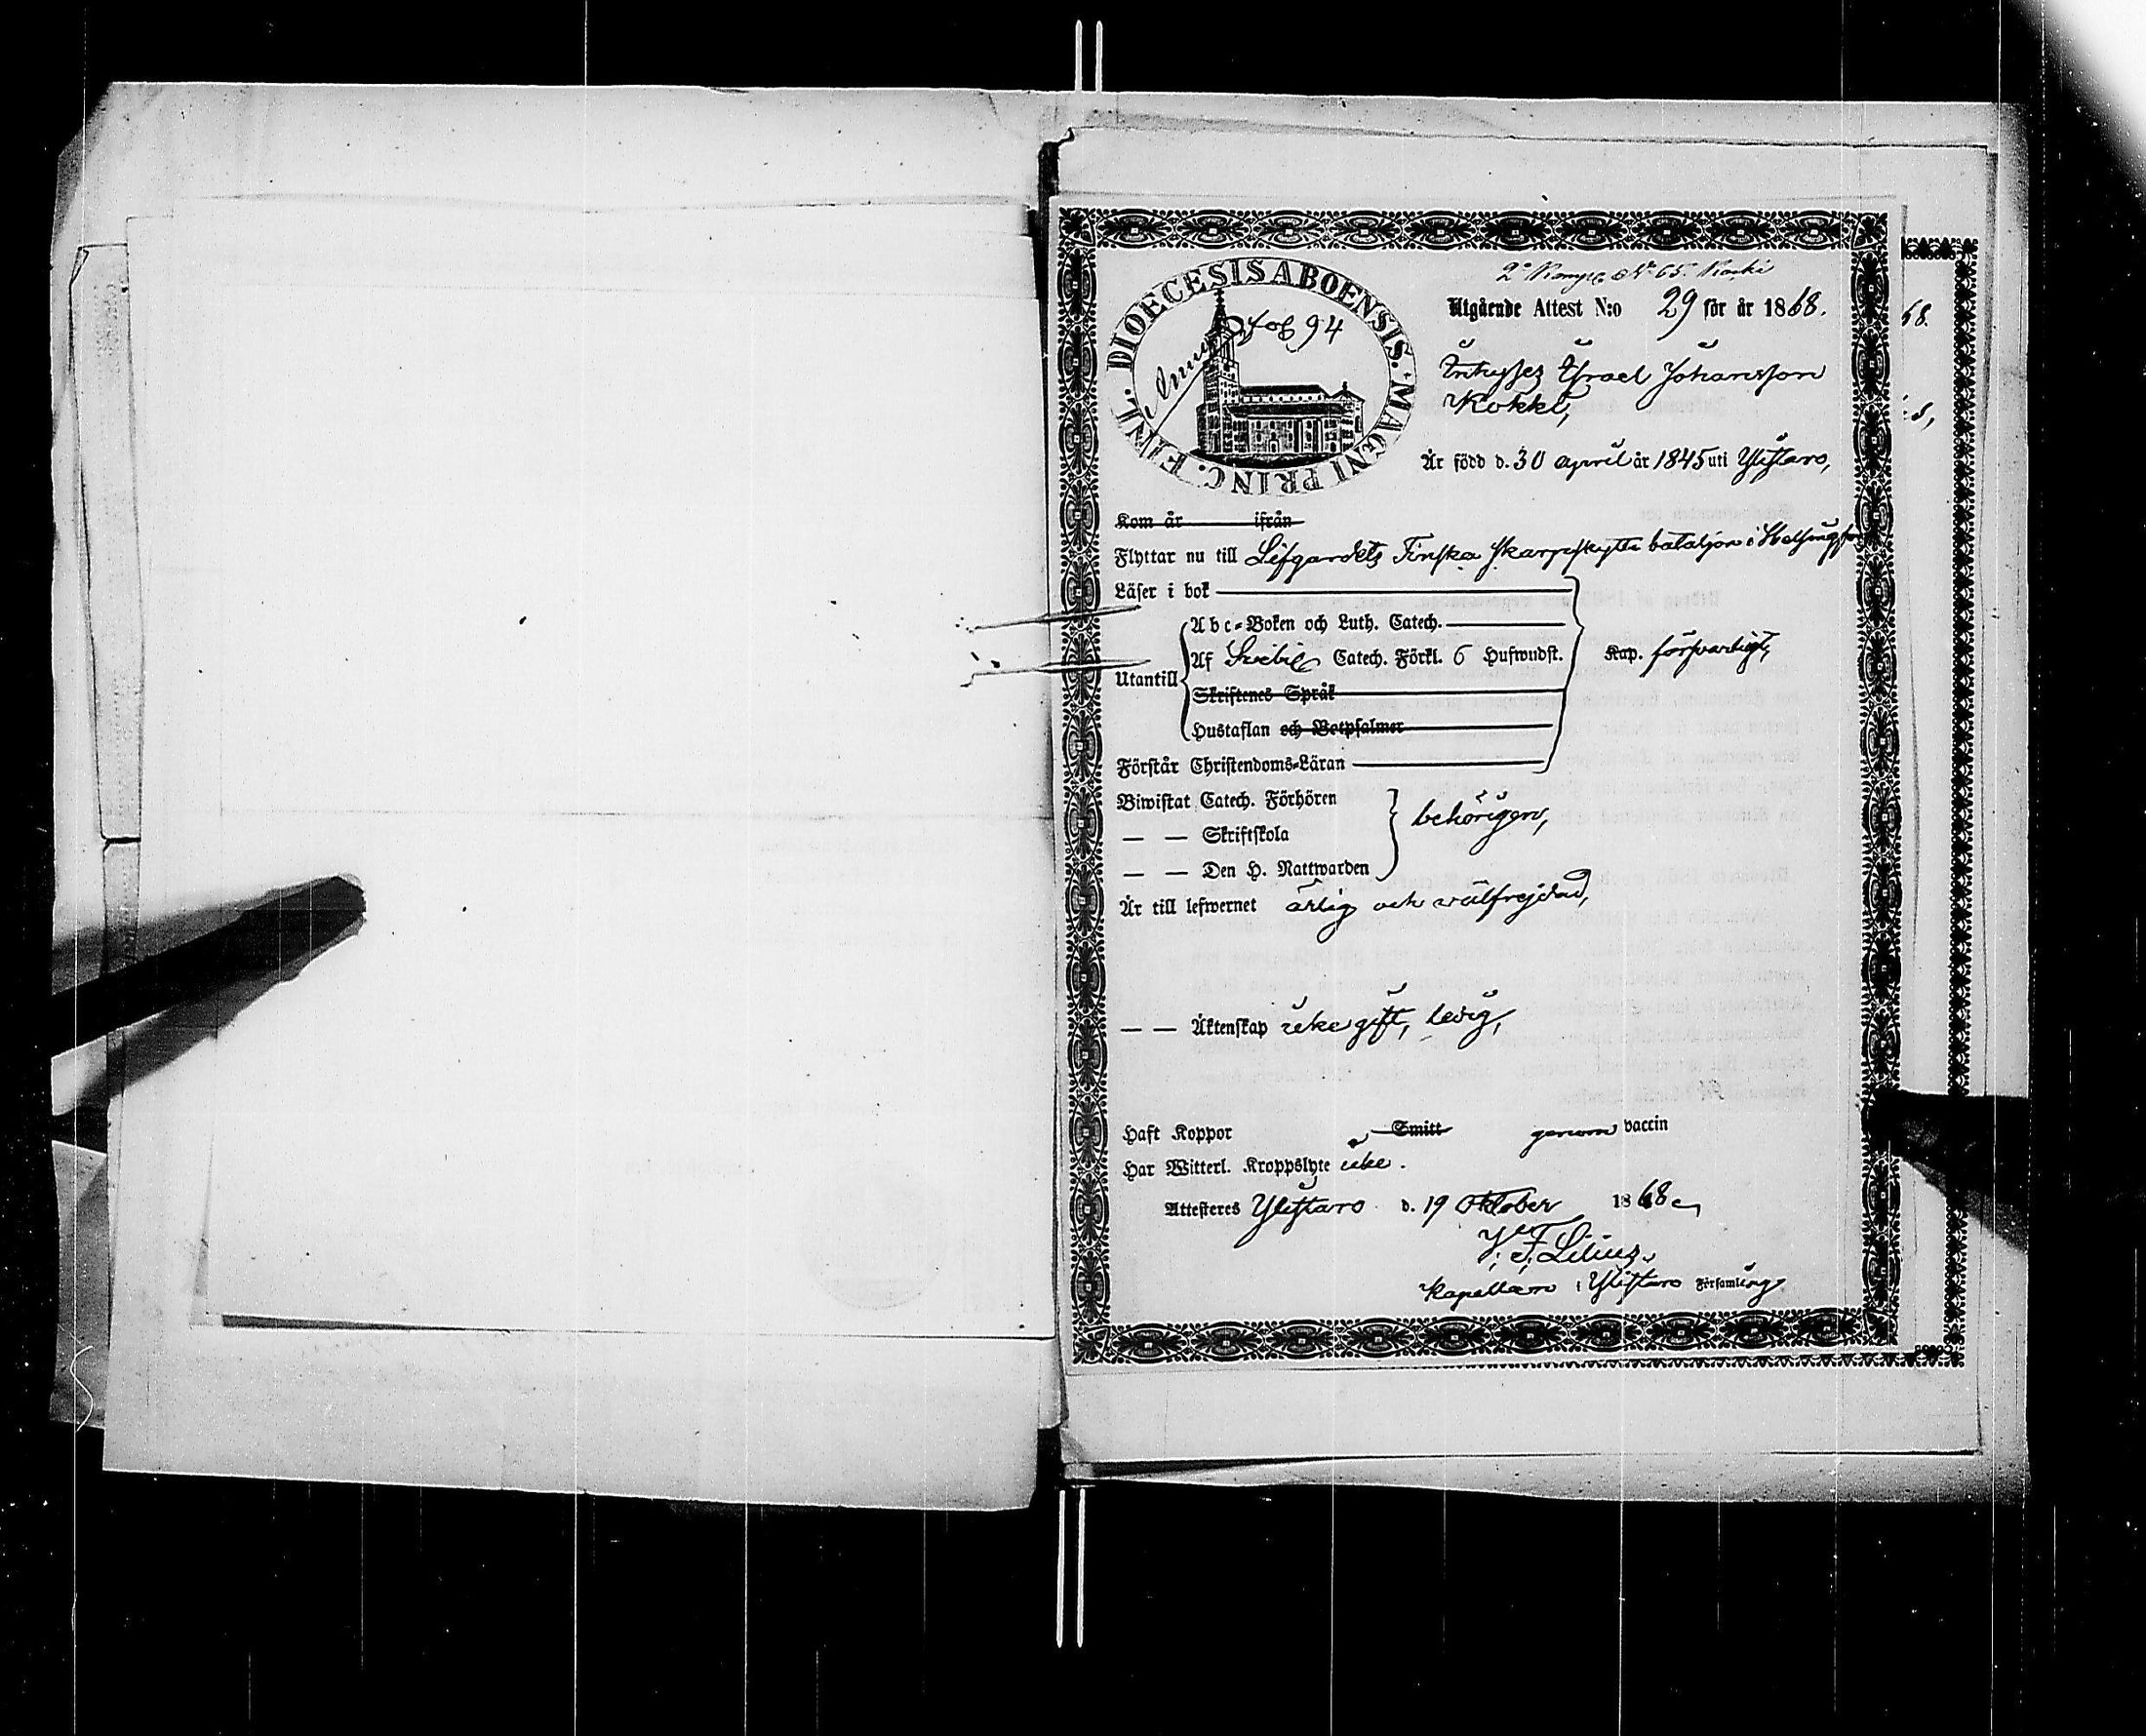 2a Komp. No 65. Koski
Utgående Attest N:o 29 för år 1868.
DIOECESIS ABOENSIS. MAGNI PRINC. FINL.
fol 94
Inhyses Israel Johansson
Kokki,
Är född d. 30 april år 1845 uti Ylistaro,
Kom år ifrån
Flyttar nu till Lifgardets Finska skarpskytte bataljon i Helsingfors
Läser i bok
Abc-Boken och Luth. Catech.
Utantill
Af Svebil. Catech. Förkl. 6 Hufwudst.
Kap. försvarligt,
Skriftenes Språk
Hustaflan och Botpsalmer
Förstår Christendoms-Läran
Biwistat Catech. Förhören
— — Skriftskola
behörigen,
— — Den H. Nattwarden
Är till lefwernet ärlig och välfrejdad,
— — Äktenskap icke gift, ledig,
Haft Koppor Smitt genom vaccin
Har Witterl. Kroppslyte icke.
Attesteres Ylistaro d. 19 Oktober 1868
J. F. Lilius.
Kapellan i Ylistaro Församling
68.